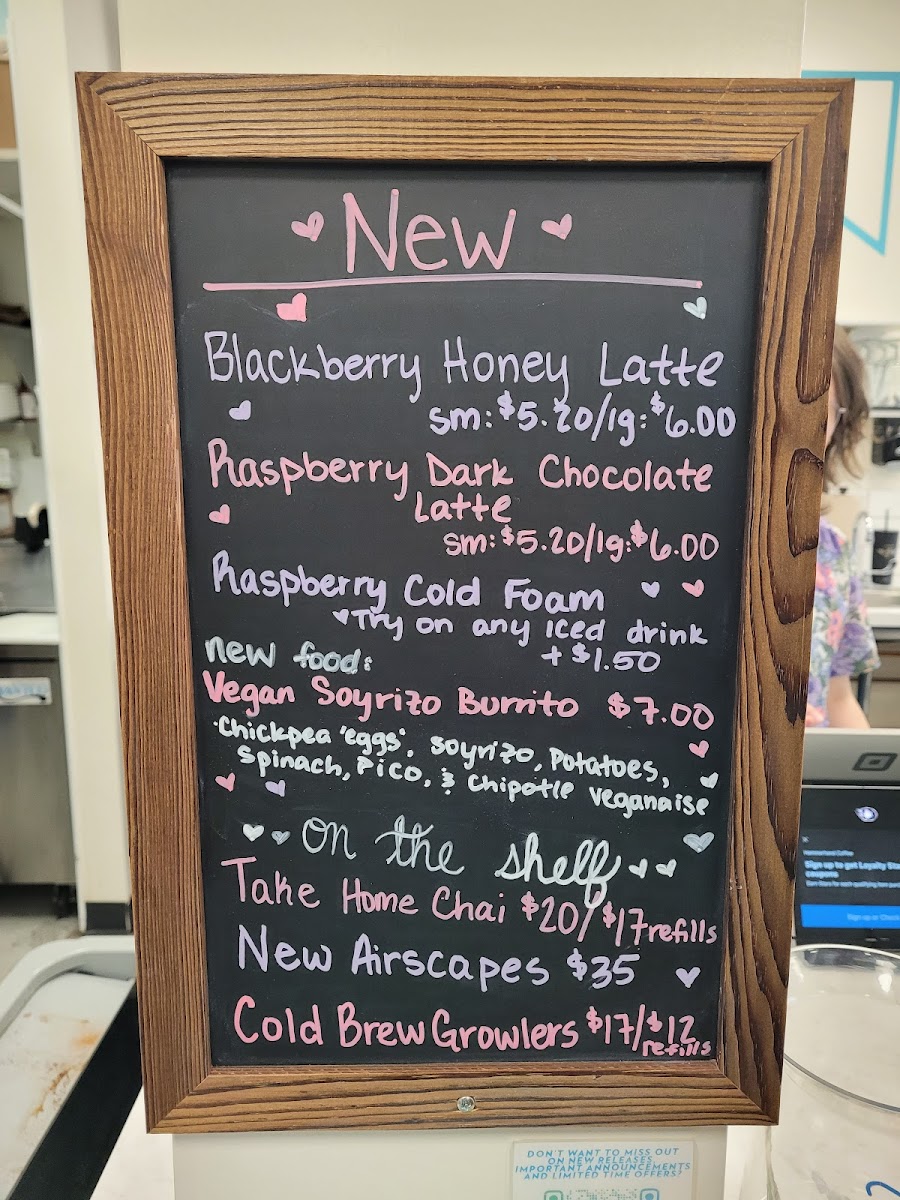 New
Blackberry Honey Latte
sm: $5.20/lg: $6.00
Raspberry Dark Chocolate
Latte
sm: $5.20/lg: $6.00
Raspberry Cold Foam
Try on any iced drink
+ $1.50
new food:
Vegan Soyrizo Burrito $7.00
·Chickpea 'eggs', soyrizo, Potatoes,
Spinach, Pico, & Chipotle Veganaise
on the shelf
Take Home Chai $20/$17 refills
New Airscapes $35
Cold Brew Growlers $17/$12
refills
Sign up to get Loyalty
coupons
DON'T WANT TO MISS OUT
ON NEW RELEASES,
IMPORTANT ANNOUNCEMENTS
AND LIMITED TIME OFFERS?